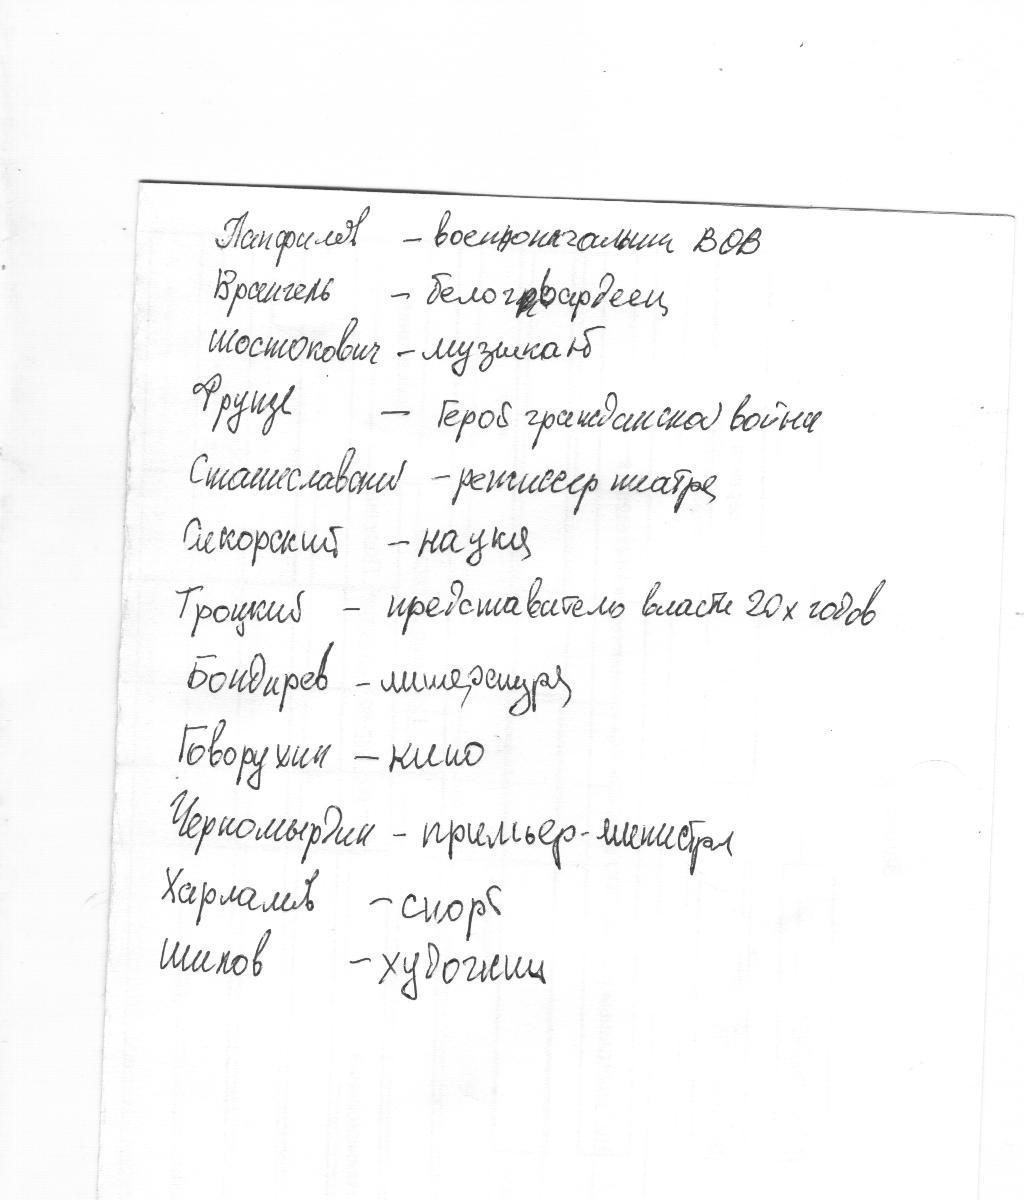 Панфилов – военноначальник ВОВ
Врангель – белогвардеец
Шостокович – музыкант
Фрунзе – Герой гражданской войны
Станиславский – режиссер театра
Сикорский – наука
Троцкий – представитель власти 20х годов
Бондарев – литература
Говорухин – кино
Черномырдин – примьер-министр
Харламов – спорт
Шилов – художник